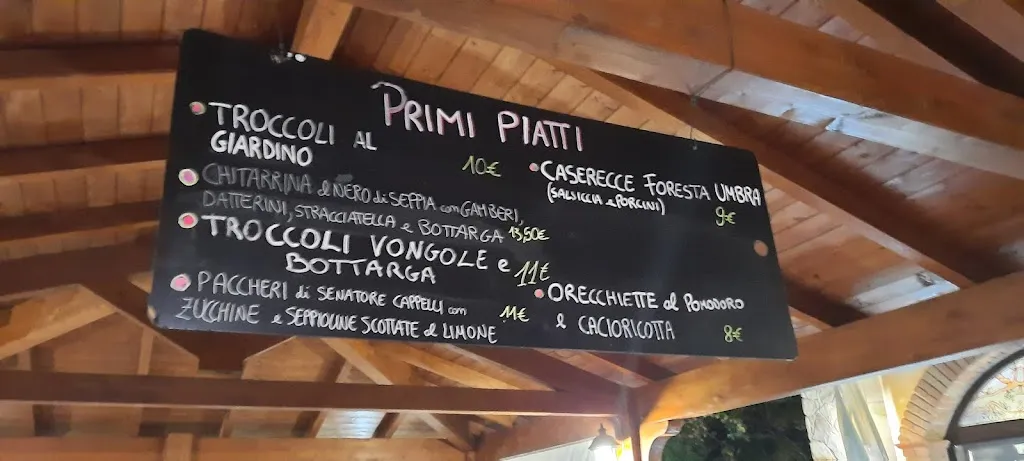 PRIMI PIATTI
TROCCOLI AL
GIARDINO 10€
CHITARRINA al NERO di SEPPIA con GAMBERI,
DATTERINI, STRACCIATELLA e BOTTARGA 13,50€
TROCCOLI VONGOLE e
BOTTARGA 11€
PACCHERI di SENATORE CAPPELLI con
ZUCCHINE e SEPPIOLINE SCOTTATE al LIMONE 11€
CASERECCE FORESTA UMBRA
(SALSICCIA e PORCINI) 9€
ORECCHIETTE al POMODORO
e CACIORICOTTA 8€